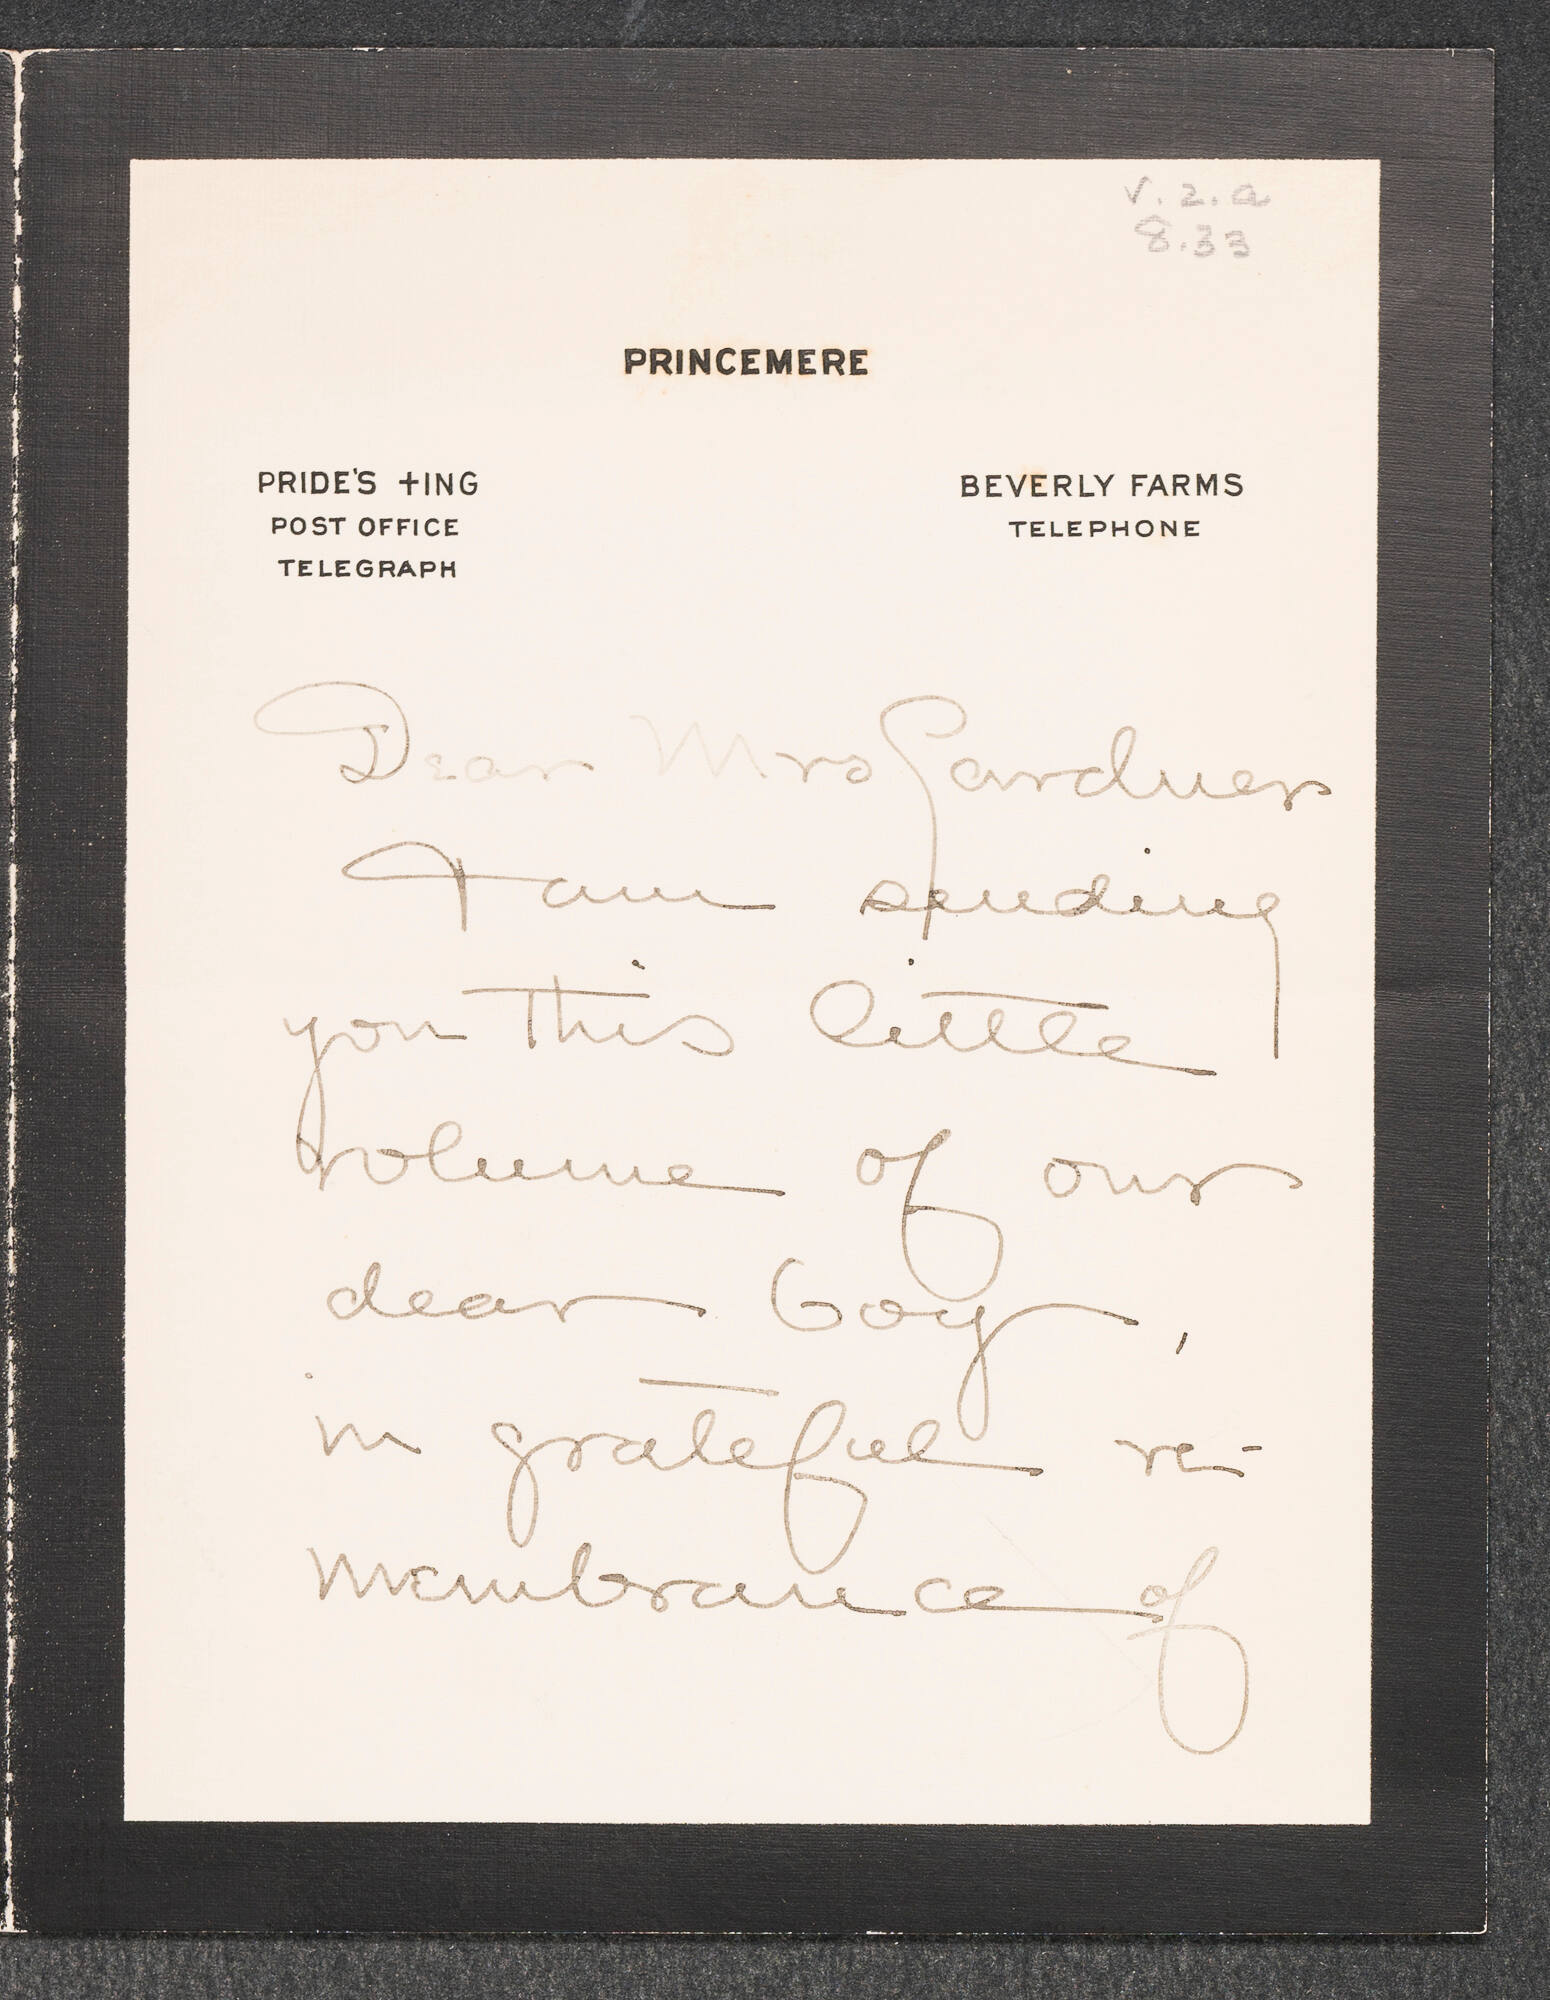 v. 2. a
8.33
PRINCEMERE
PRIDE'S +ING
POST OFFICE
TELEGRAPH
BEVERLY FARMS
TELEPHONE
Dear Mrs Gardner
I am sending
you this little
volume of our
dear boy,
in grateful re-
membrance of